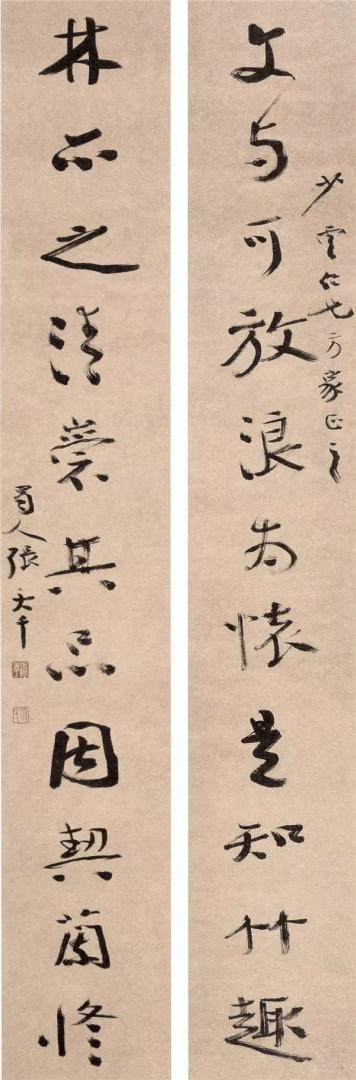 文与可放浪为懷是知竹趣
少雲仁兄方家正之
林之清其品因契蘭修
蜀人張大千